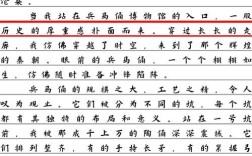 论集。
当我站在兵马俑博物馆的入口，一股
历史的厚重感扑面而来，穿过长长的走
廊，我仿佛穿越了时空，来到了那个辉煌
的秦朝。眼前的兵马俑，一个个栩栩如
生，仿佛随时准备冲锋陷阵。
兵马俑的规模之大、工艺之精，令人
叹为观止。它们被分为不同的坑，每个坑
都有其独特的布局和意义。站在一号坑
前，我被那成千上万的陶俑深深震撼。它
们排列整齐，有的手持长矛，有的